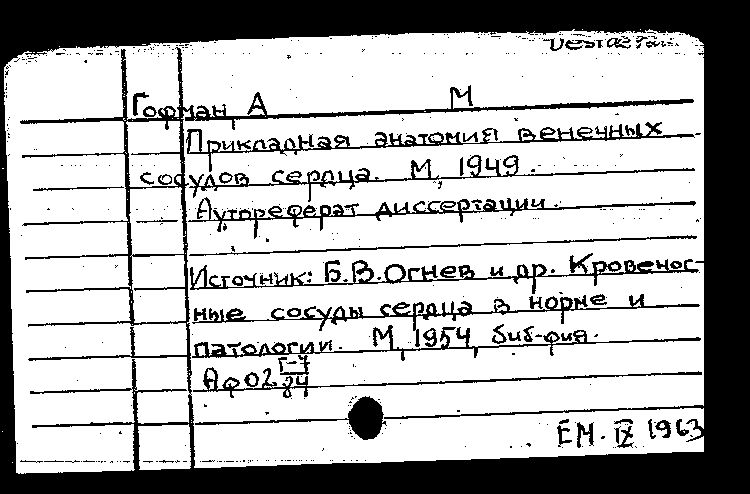 Гофман, А М
Прикладная анатомия венечных
сосудов сердца. М, 1949.
Аутореферат диссертации.
Источник: Б.В. Огнев и др. Кровенос-
ные сосуды сердца в норме и
патологии. М, 1954, биб-фия.
АФ02 Г-4
84
ЕМ. IX 1963